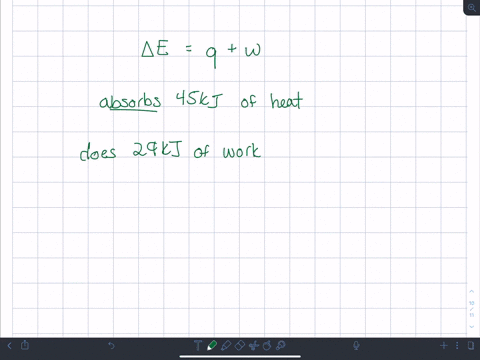 ΔE = q + w
absorbs 45kJ of heat
does 29kJ of work